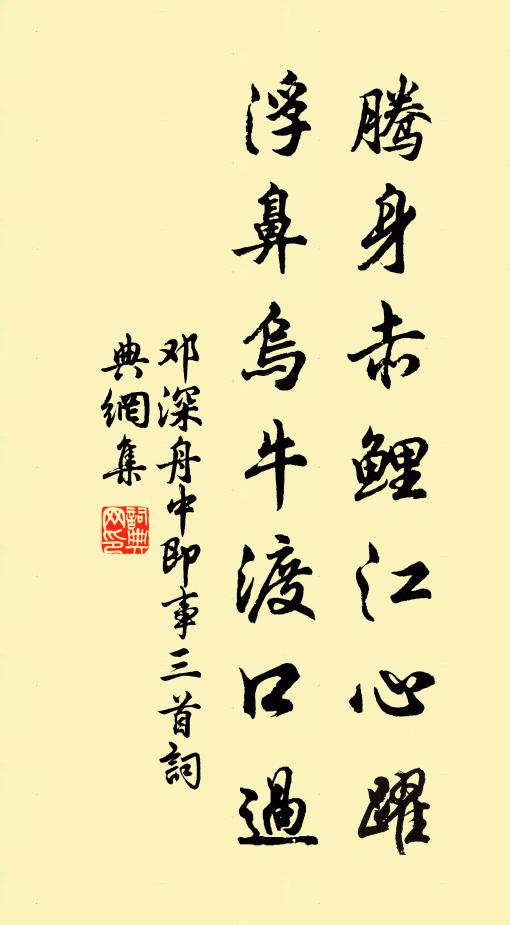 腾身赤鲤江心躍
浮鼻烏牛渡口過
邓深舟中即事三首詞
典網集
詞典
网印